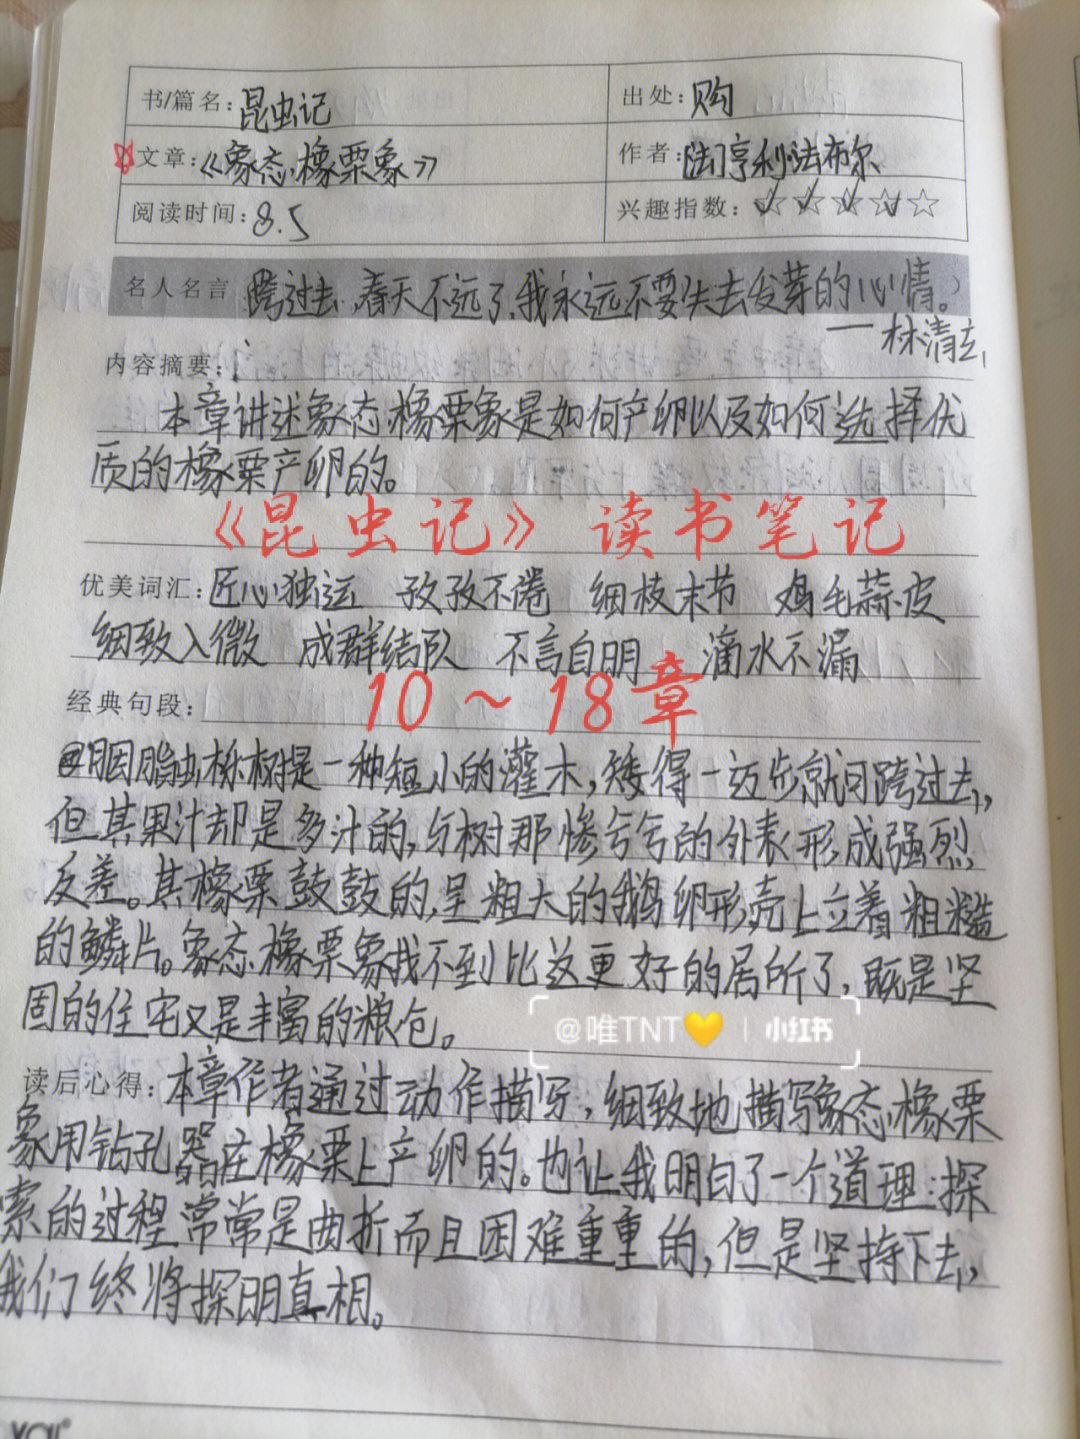 书/篇名：昆虫记
出处：购
文章：《象态橡栗象》
作者：[法]亨利·法布尔
阅读时间：8.5
兴趣指数：☆☆☆☆☆
名人名言 跨过去，春天不远了，我永远不要失去发芽的心情。
——林清玄
内容摘要：
本章讲述象态橡栗象是如何产卵以及如何选择优
质的橡栗产卵的。
《昆虫记》读书笔记
优美词汇：匠心独运 孜孜不倦 细枝末节 鸡毛蒜皮
细致入微 成群结队 不言自明 滴水不漏
10～18章
经典句段：
胭脂虫栎树是一种短小的灌木，矮得一迈步就可跨过去，
但其果汁却是多汁的，与树那惨兮兮的外表形成强烈
反差。其橡栗鼓鼓的，呈粗大的鹅卵形，壳上立着粗糙
的鳞片。象态橡栗象找不到比这更好的居所了，既是坚
固的住宅又是丰富的粮仓。
@唯TNT💛 | 小红书
读后心得：本章作者通过动作描写，细致地描写象态橡栗
象用钻孔器在橡栗上产卵的。也让我明白了一个道理：探
索的过程常常是曲折而且困难重重的，但是坚持下去，
我们终将探明真相。